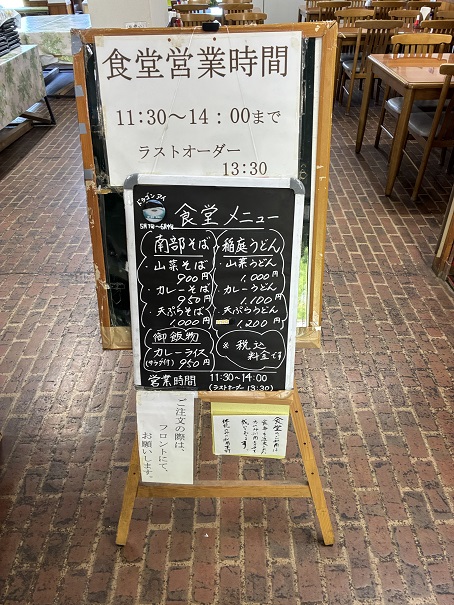 食堂営業時間
11:30～14：00まで
ラストオーダー
13:30
ドラゴンアイ
食堂メニュー
南部そば
・山菜そば
900円
・カレーそば
950円
・天ぷらそば
1,000円
御飯物
カレーライス
(サラダ付) 950円
稲庭うどん
・山菜うどん
1,000円
・カレーうどん
1,100円
・天ぷらうどん
1,200円
※税込
料金です
営業時間 11:30～14:00
(ラストオーダー 13:30)
ご注文の際は、
フロントにて、
お願いします。
食堂